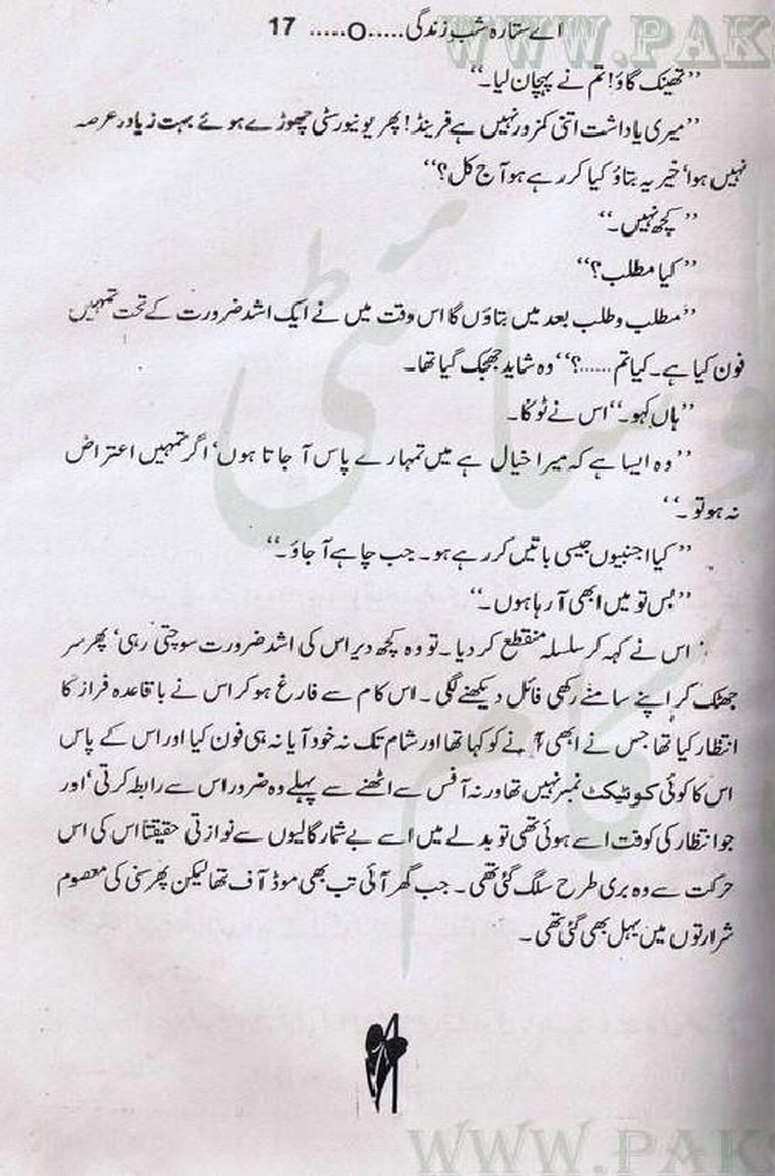 WWW.PAKS
اے ستارہ شب زندگی.....O..... 17
’’تھینک گاؤ! تم نے پہچان لیا۔‘‘
’’میری یاداشت اتنی کمزور نہیں ہے فرینڈ! پھر یونیورسٹی چھوڑے ہوئے بہت زیادہ عرصہ
نہیں ہوا‘ خیر یہ بتاؤ کیا کر رہے ہو آج کل؟‘‘
’’کچھ نہیں۔‘‘
’’کیا مطلب؟‘‘
’’مطلب وطلب بعد میں بتاؤں گا اس وقت میں نے ایک اشد ضرورت کے تحت تمہیں
فون کیا ہے۔ کیا تم......؟‘‘ وہ شاید جھجک گیا تھا۔
’’ہاں کہو۔‘‘ اس نے ٹوکا۔
’’وہ ایسا ہے کہ میرا خیال ہے میں تمہارے پاس آ جاتا ہوں‘ اگر تمہیں اعتراض
نہ ہو تو۔‘‘
’’کیا اجنبیوں جیسی باتیں کر رہے ہو۔ جب چاہے آ جاؤ۔‘‘
’’بس تو میں ابھی آ رہا ہوں۔‘‘
اس نے کہہ کر سلسلہ منقطع کر دیا۔ تو وہ کچھ دیر اس کی اشد ضرورت سوچتی رہی‘ پھر سر
جھٹک کر اپنے سامنے رکھی فائل دیکھنے لگی۔ اس کام سے فارغ ہو کر اس نے باقاعدہ فراز کا
انتظار کیا تھا جس نے ابھی آنے کو کہا تھا اور شام تک نہ خود آیا نہ ہی فون کیا اور اس کے پاس
اس کا کوئی کونٹیکٹ نمبر نہیں تھا ورنہ آفس سے اٹھنے سے پہلے وہ ضرور اس سے رابطہ کرتی‘ اور
جو انتظار کی کوفت اسے ہوئی تھی تو بدلے میں اسے بے شمار گالیوں سے نوازتی حقیقتاً اس کی اس
حرکت سے وہ بری طرح سلگ گئی تھی۔ جب گھر آئی تب بھی موڈ آف تھا لیکن پھر سنی کی معصوم
شرارتوں میں بہل بھی گئی تھی۔
WWW.PAKS